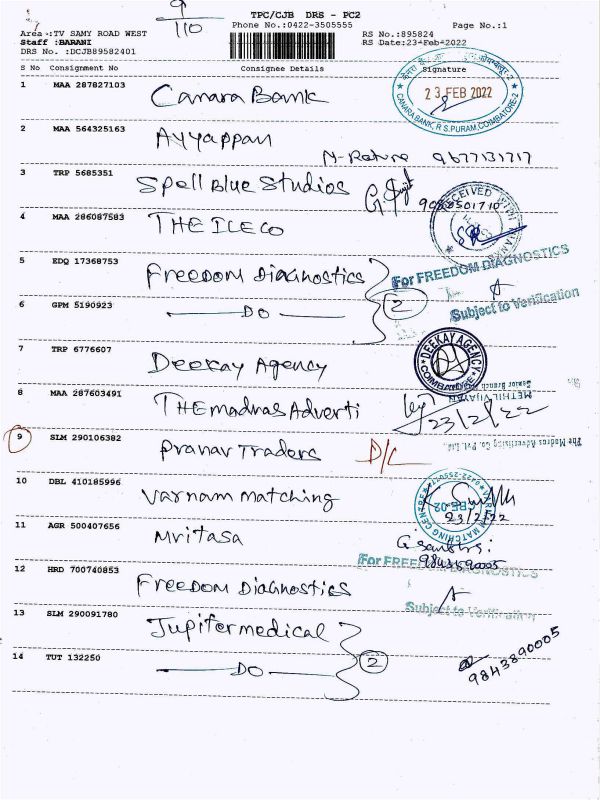 9
110
TPC/CJB DRS - PC2
Phone No.:0422-3505555
Page No.:1
Area :TV SAMY ROAD WEST
Staff :BARANI
DRS No. :DCJB89582401
RS No.:895824
RS Date:23-Feb-2022
S No Consignment No Consignee Details Signature
1 MAA 287827103 Canara Bank
23 FEB 2022
CANARA BANK, R S PURAM, COIMBATORE-2
2 MAA 564325163 Ayyappan
9677131717
3 TRP 5685351 Spell Blue Studios
RECEIVED WITH THANKS
4 MAA 286087583 THE ILECO
5 EDQ 17368753 Freedom Diagnostics
For FREEDOM DIAGNOSTICS
6 GPM 5190923 DO 2
Subject to Verification
7 TRP 6776607 Deekay Agency
DEEKAY AGENCY COIMBATORE
8 MAA 287603491 THE madras Adverti
23/2/22
METHIL VIJAYAN
Senior Branch
The Madras Advertising Co. Pvt. Ltd.,
9 SLM 290106382 Pranav Traders D/C
10 DBL 410185996 Varnam matching
VARNAM MATCHING CENTRE
23/2/22
11 AGR 500407656 Mritasa
12 HRD 700740853 Freedom Diagnostics
For FREEDOM DIAGNOSTICS
Subject to Verification
13 SLM 290091780 Jupiter medical
14 TUT 132250 DO 2
9843890005